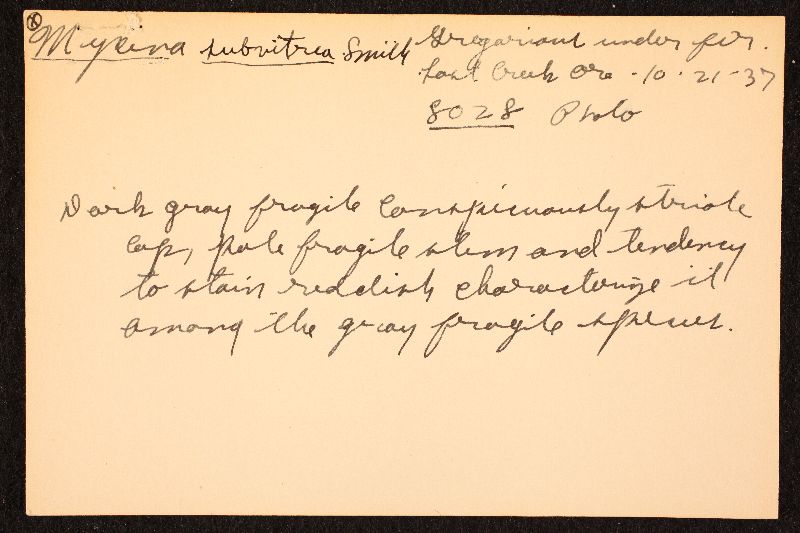 Mycena subvitrea Smith Gregarious under fir.
Lost Creek Ore - 10 - 21 - 37
8028 Photo
Dark gray fragile conspicuously striate
cap, pale fragile stem and tendency
to stain reddish characterize it
among the gray fragile species.